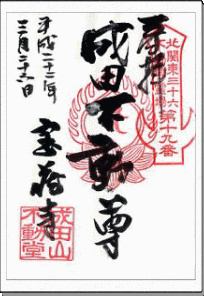 奉拝
北関東三十六
不動尊霊場
第十九番
成田不動尊
宝蔵寺
平成二十二年
成田山
不動堂